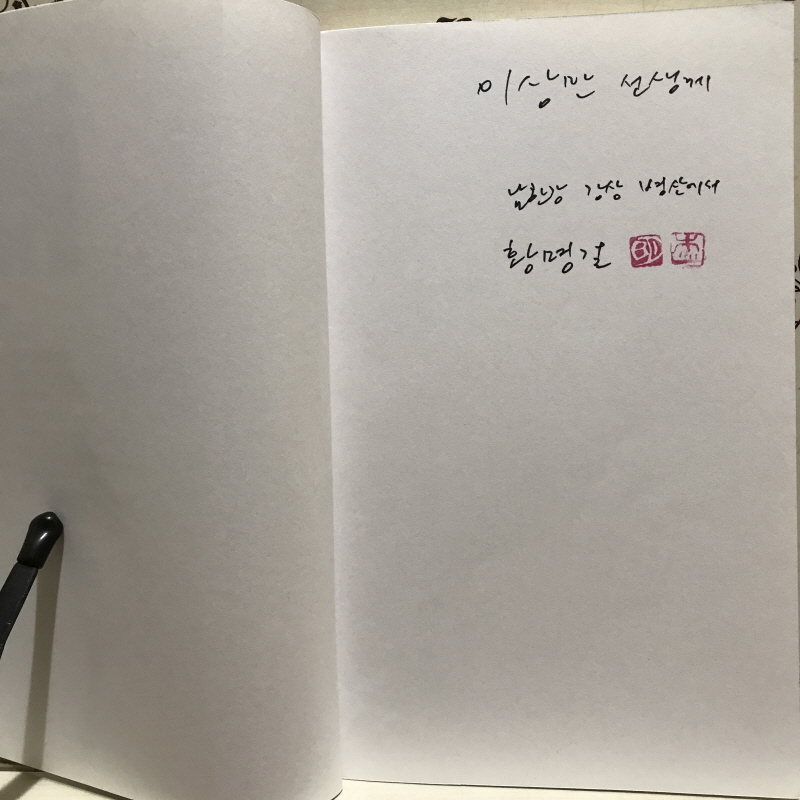 이상만 선생께
남한강 강상 병산에서
황명걸